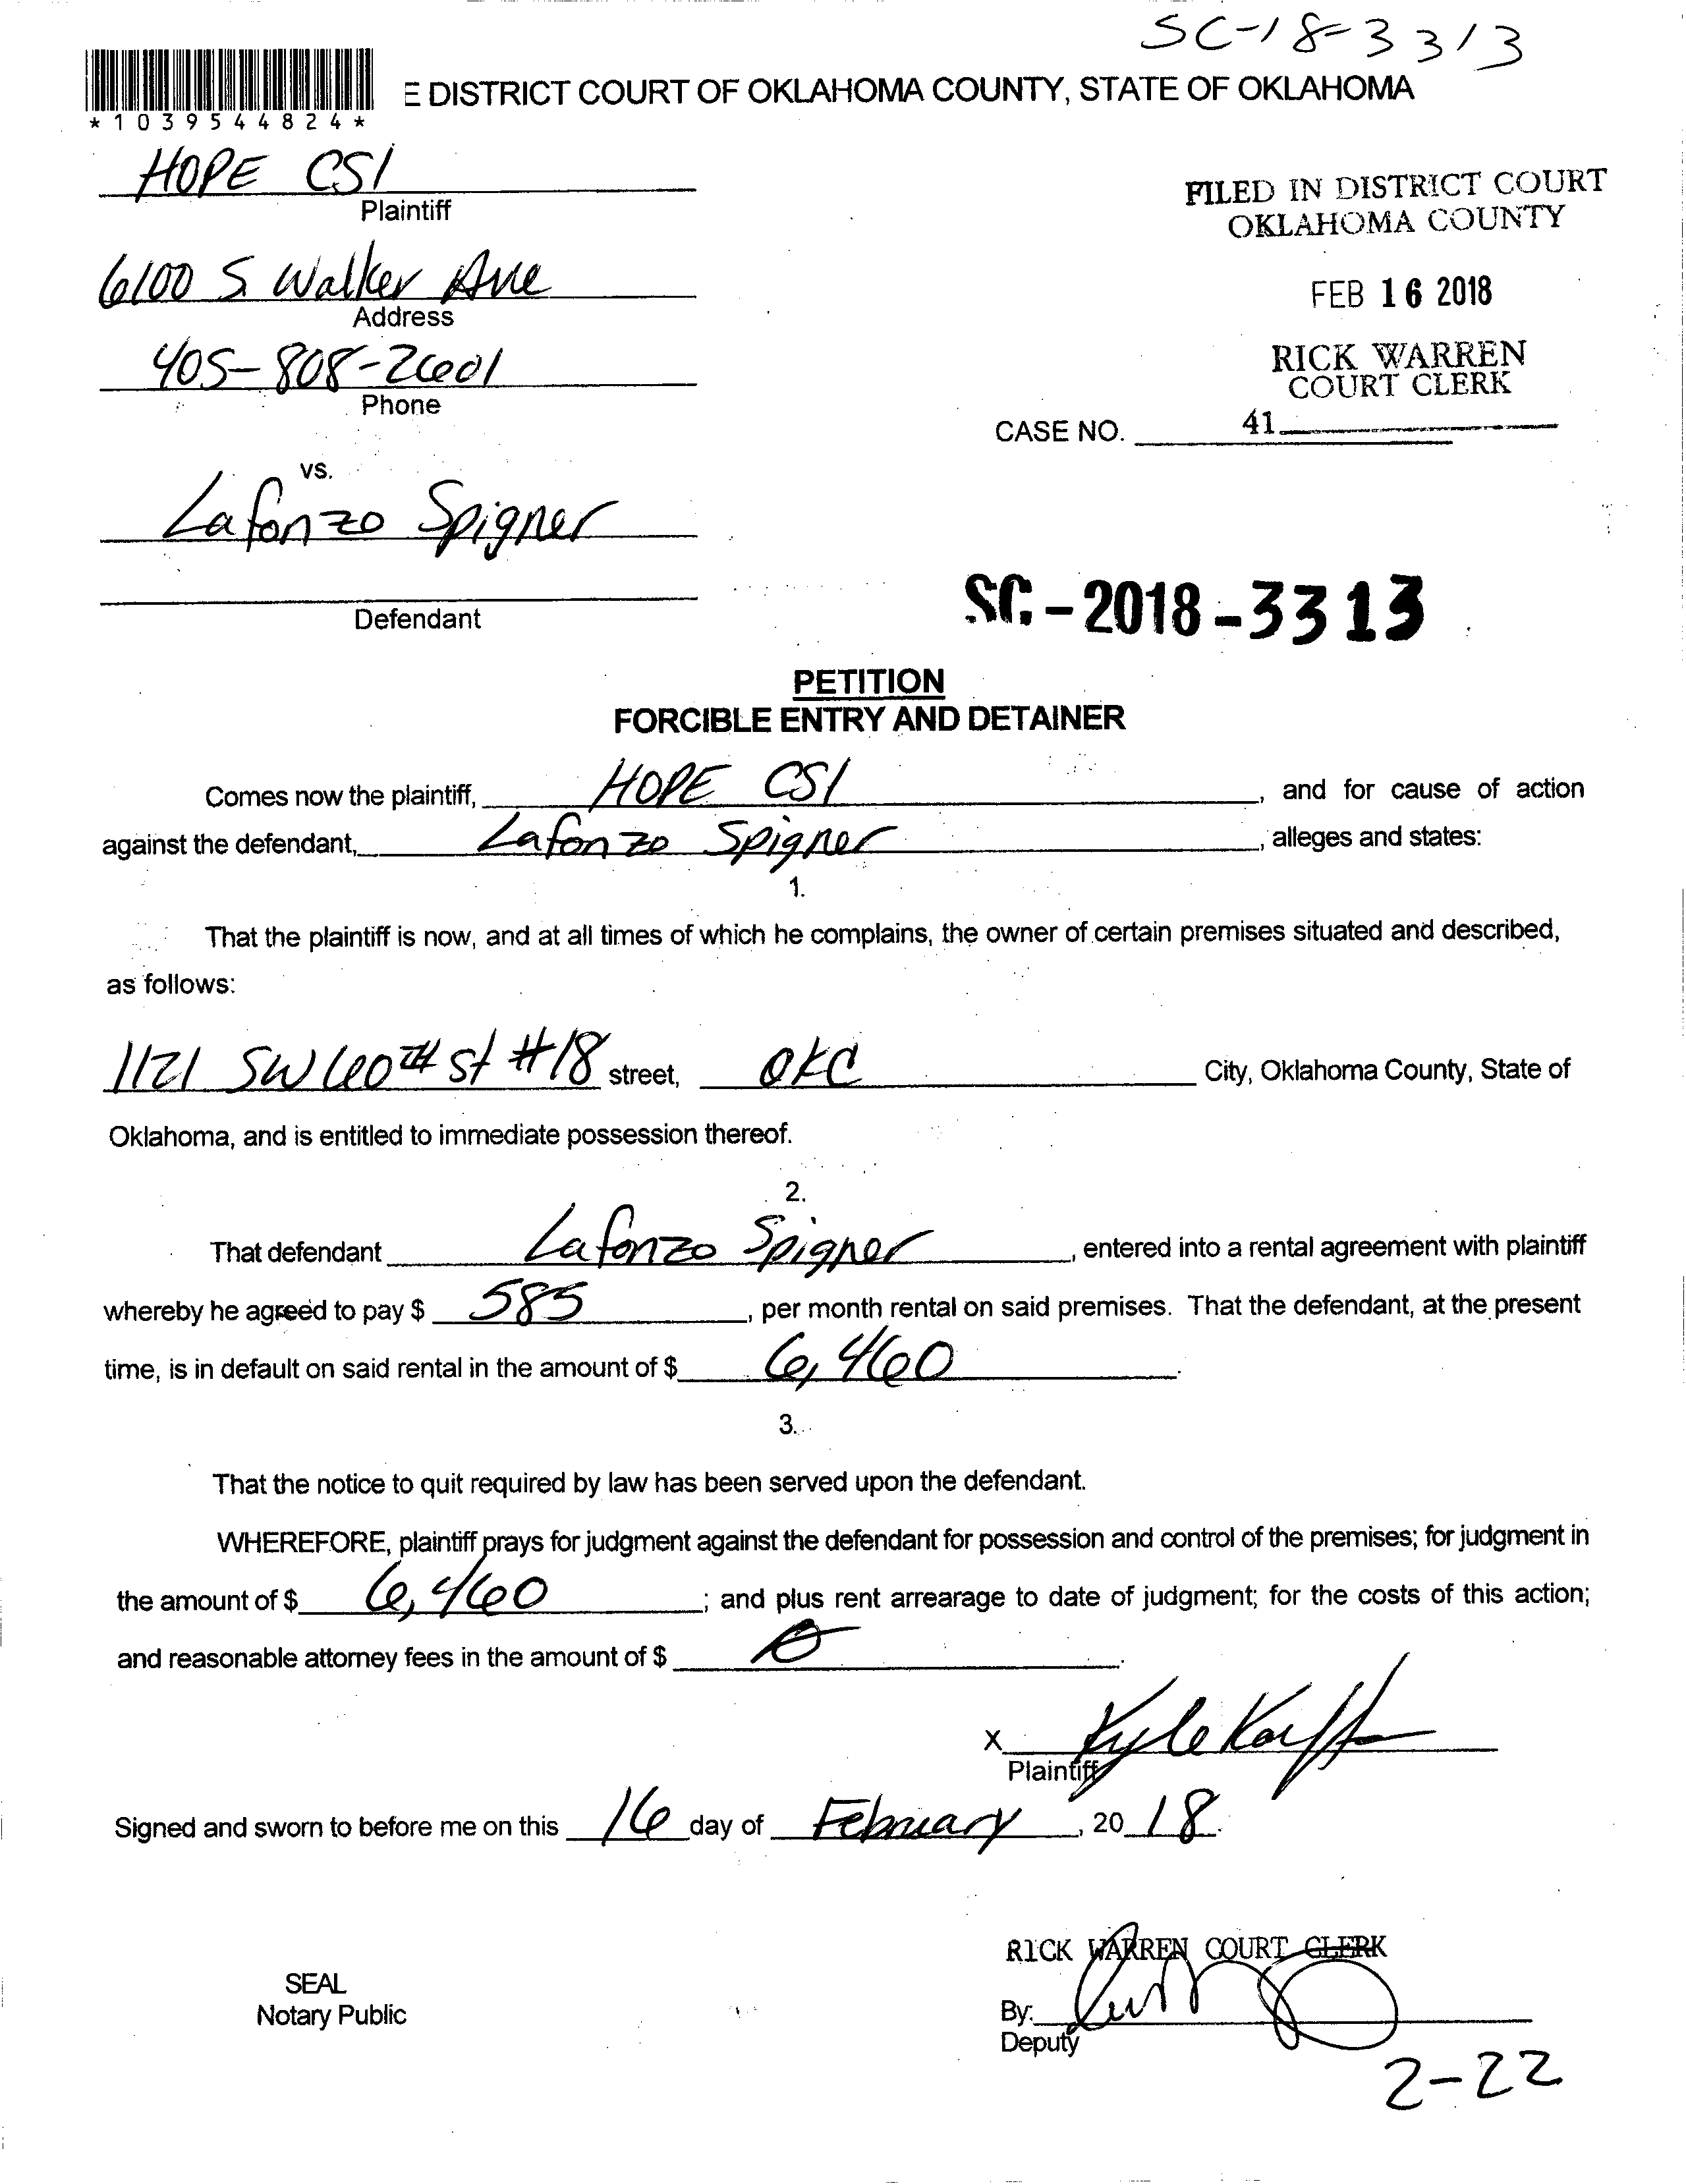 SC-18-3313
E DISTRICT COURT OF OKLAHOMA COUNTY, STATE OF OKLAHOMA
*1039544824*
HOPE CSI
Plaintiff
FILED IN DISTRICT COURT
OKLAHOMA COUNTY
6100 S Walker Ave
Address
FEB 16 2018
405-808-2601
Phone
RICK WARREN
COURT CLERK
CASE NO. 41
vs.
Lafonzo Spigner
Defendant
SC-2018-3313
PETITION
FORCIBLE ENTRY AND DETAINER
Comes now the plaintiff, HOPE CSI, and for cause of action
against the defendant, Lafonzo Spigner, alleges and states:
1.
That the plaintiff is now, and at all times of which he complains, the owner of certain premises situated and described,
as follows:
1121 SW 60TH St #18 street, OKC City, Oklahoma County, State of
Oklahoma, and is entitled to immediate possession thereof.
2.
That defendant Lafonzo Spigner, entered into a rental agreement with plaintiff
whereby he agreed to pay $ 585, per month rental on said premises. That the defendant, at the present
time, is in default on said rental in the amount of $ 6,460.
3.
That the notice to quit required by law has been served upon the defendant.
WHEREFORE, plaintiff prays for judgment against the defendant for possession and control of the premises; for judgment in
the amount of $ 6,460; and plus rent arrearage to date of judgment; for the costs of this action;
and reasonable attorney fees in the amount of $ 0.
X Kyle
Plaintiff
Signed and sworn to before me on this 16 day of February, 2018.
RICK WARREN COURT CLERK
SEAL
Notary Public
By:
Deputy
2-22